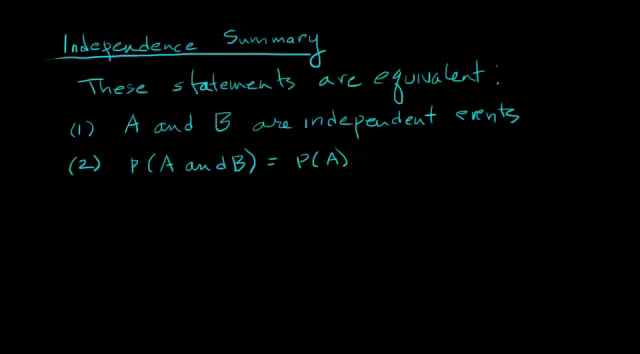 Independence Summary
These statements are equivalent:
(1) A and B are independent events
(2) P(A and B) = P(A)